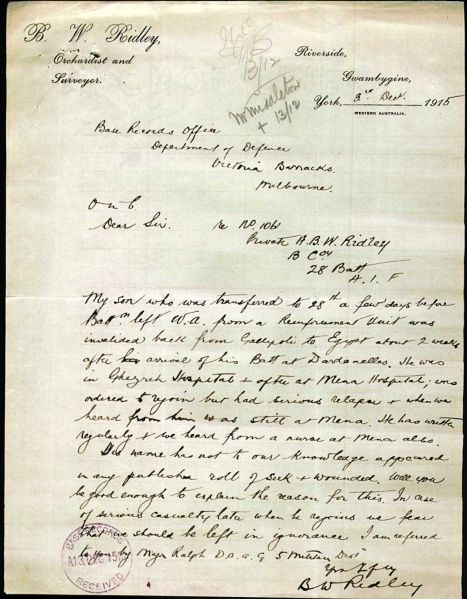 B. W. Ridley,
Orchardist and
Surveyor.
Riverside,
Gwambygine,
York, 3rd Dec. 1915
WESTERN AUSTRALIA.
3/12
Mr Middleton
+ 13/12
Base Records Office
Department of Defence
Victoria Barracks.
Melbourne.
O in C.
Dear Sir. re No. 1061
Private A.B.W. Ridley
B Coy
28 Batt
A. I. F
My son who was transferred to 28th a few days before
Battn left W.A. from a Reinforcement Unit was
invalided back from Gallipoli to Egypt about 2 weeks
after his arrival of his Batt at Dardanelles. He was
in Ghezireh Hospital & after at Mena Hospital; was
ordered to rejoin but had serious relapse & when we
heard from him was still at Mena. He has written
regularly & we heard from a nurse at Mena also.
His name has not to our knowledge appeared
in any published roll of sick & wounded. Will you
be good enough to explain the reason for this. In case
of serious casualty later when he rejoins we fear
that we should be left in ignorance. I am referred
to you by Major Ralph D.A.A.G 5 Military Dist
Yrs ffy
B W Ridley
BASE RECORDS
A 13 DEC 1915
RECEIVED